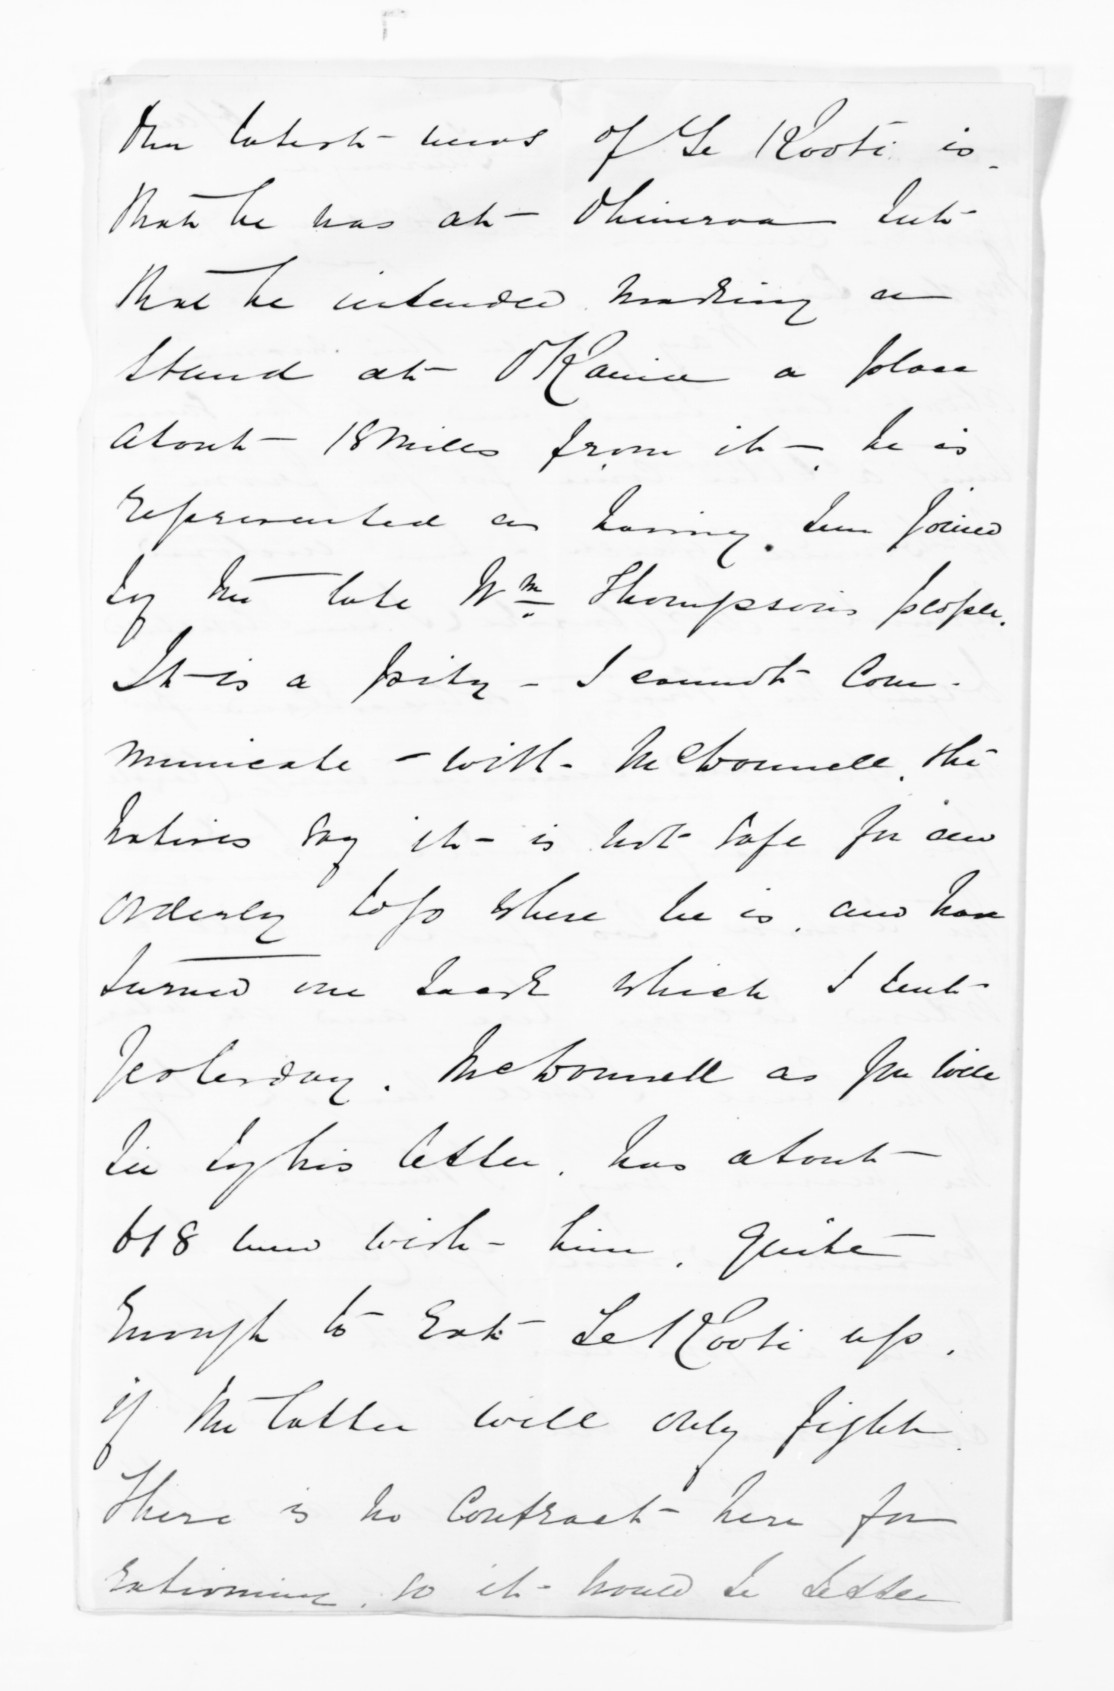 Our latest news of Te Kooti is
that he was at Ohineroa but
that he intended making a
stand at OKauia a place
about 18 miles from it - he is
represented as having been joined
by the late Wm Thompson's people.
It is a pity - I cannot com-
municate - with McDonnell. the
natives say it - is not safe for an
orderly to go where he is, and have
turned one back which I sent
yesterday. McDonnell as you will
see by his letter. has about
618 men with him. quite
enough to eat Te Kooti up.
if the latter will only fight.
There is no contract here for
rationing. so it would be better